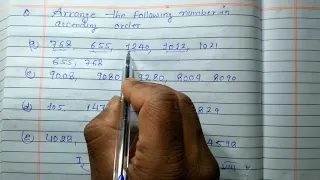 Q Arrange the following number in
ascending order
(a) 768 655, 1240, 1012, 1021
655, 768
(c) 9008, 9080 9280, 8009 8090
(d) 105, 147 829
(e) 4028, 4598